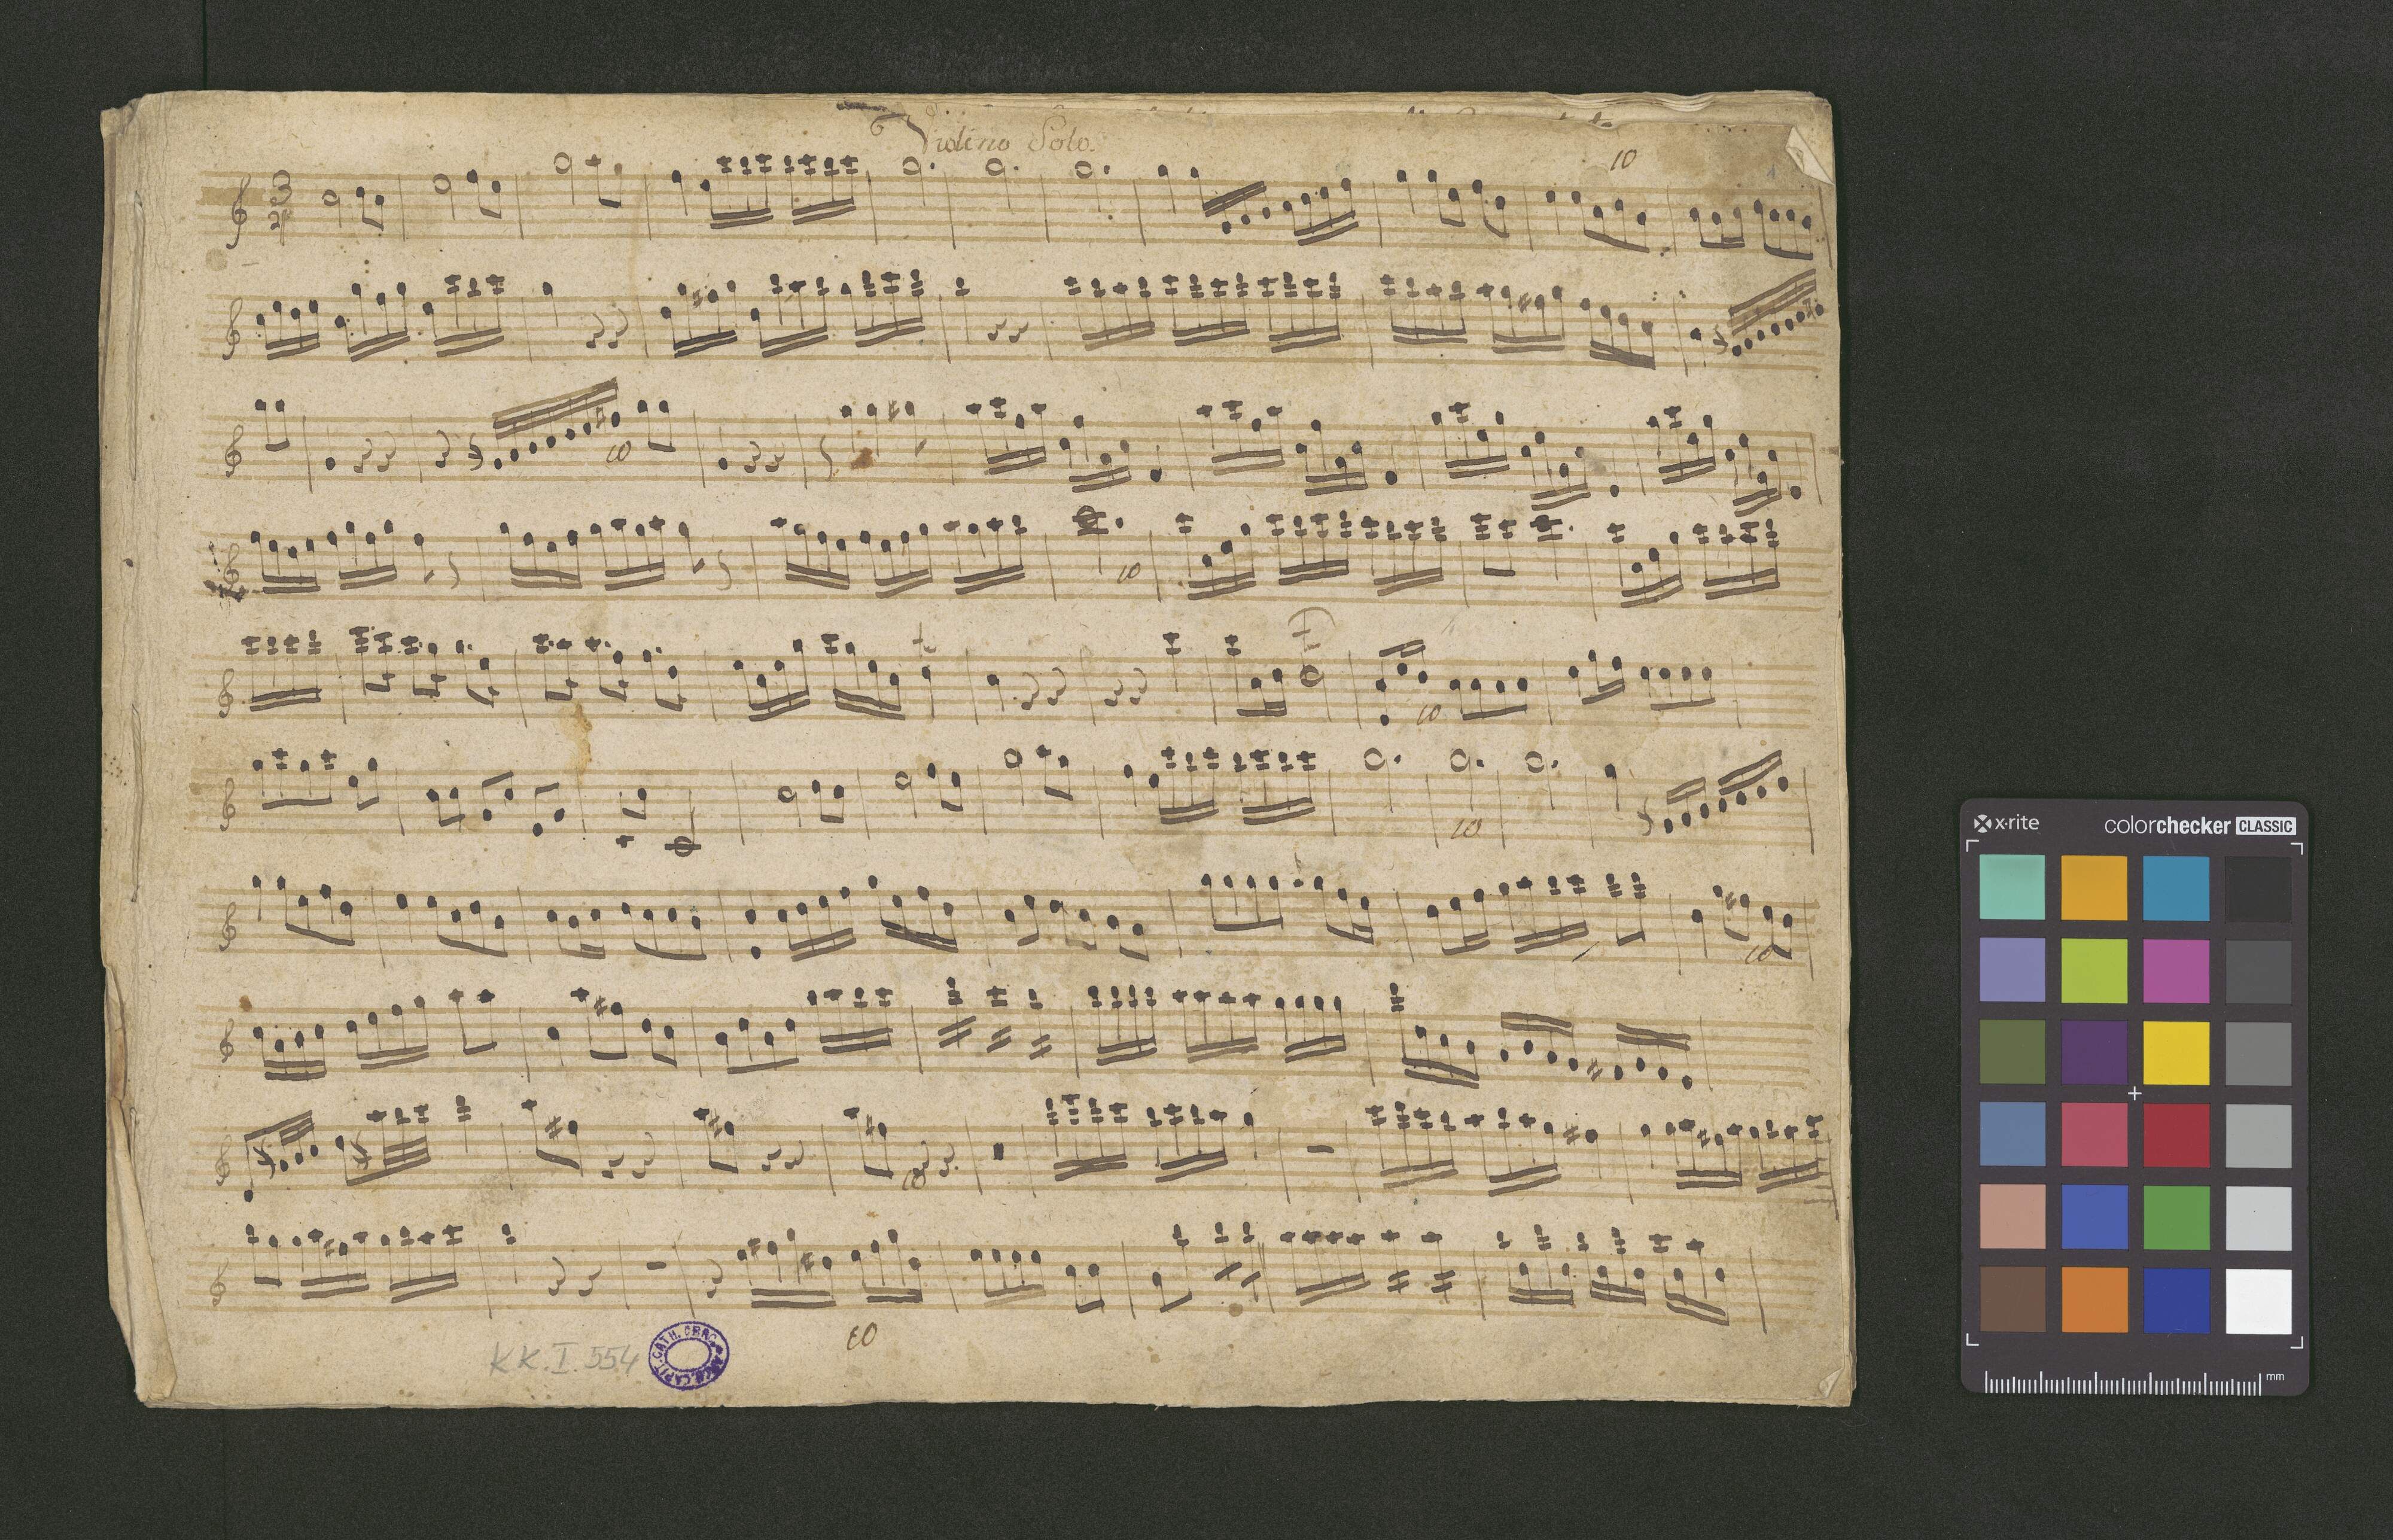 Violino Solo.
10
3
4
10
10
10
10
10
10
KK.I.554
10
x·rite
colorchecker CLASSIC
mm